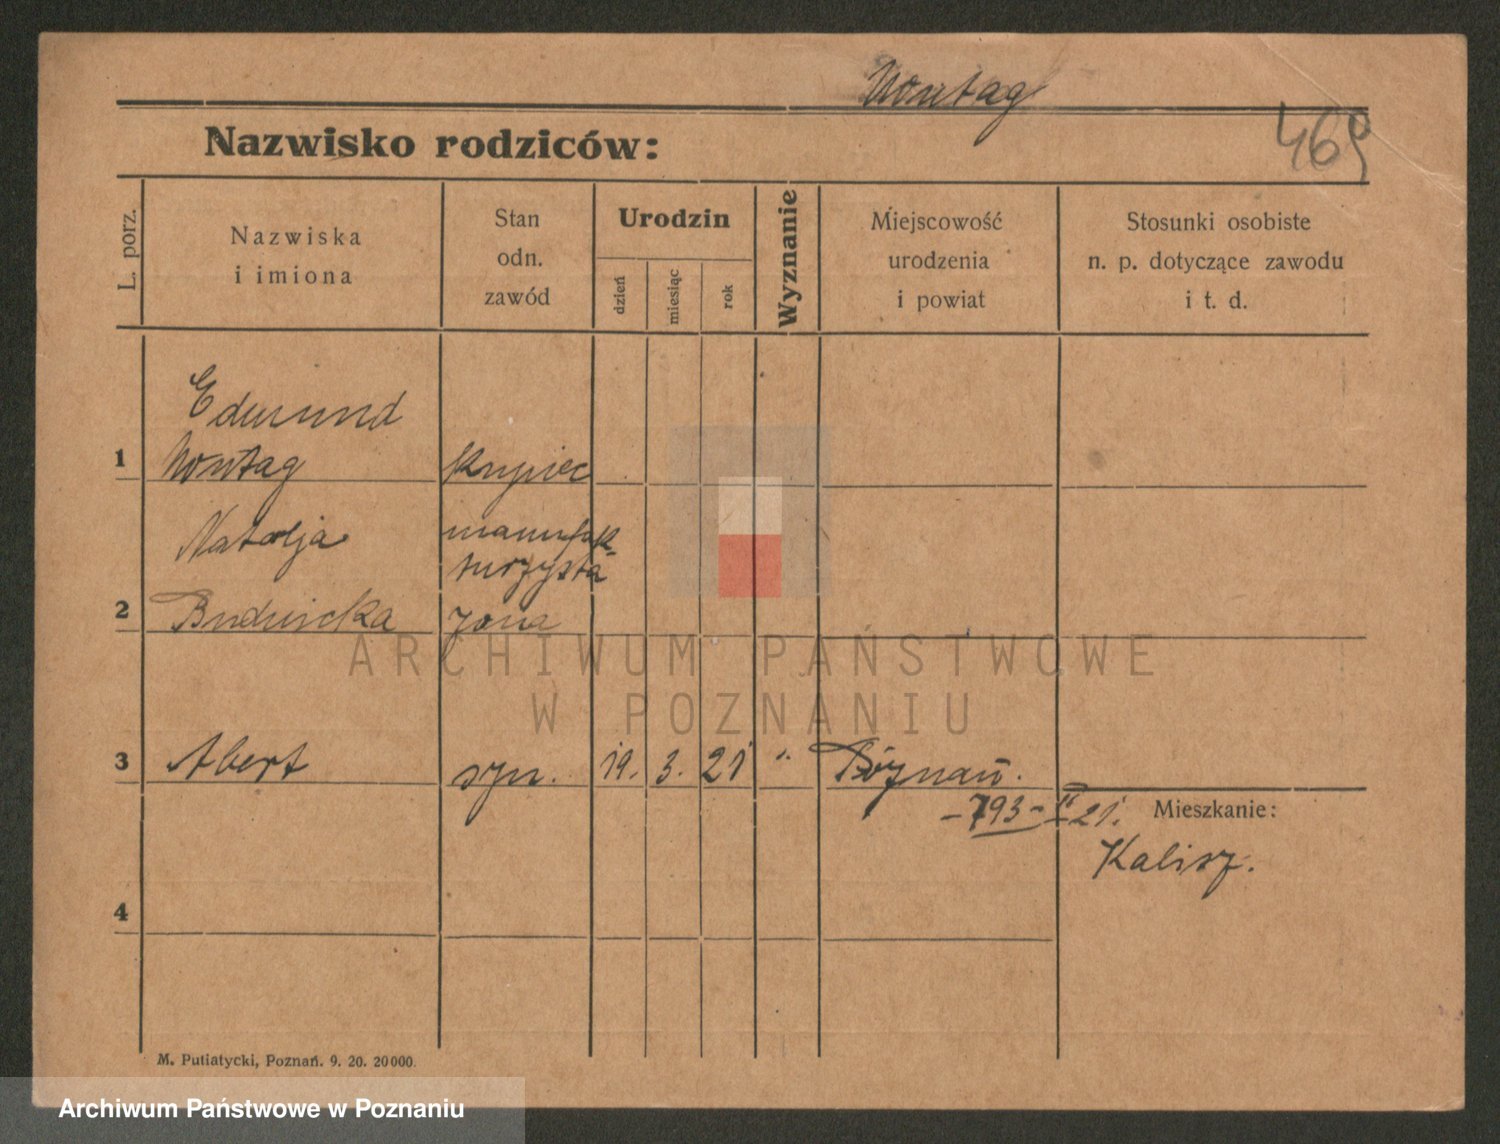 Montag
Nazwisko rodziców:
469
L. porz.
Nazwiska
i imiona
Stan
odn.
zawód
Urodzin
dzień
miesiąc
rok
Wyznanie
Miejscowość
urodzenia
i powiat
Stosunki osobiste
n. p. dotyczące zawodu
i t. d.
Edmund
1 Montag kupiec
Natalja manufak-
turzysta
2 Budwicka żona
3 Abert syn. 19. 3. 21 " Poznań.
-793-II 21. Mieszkanie:
Kalisz.
4
ARCHIWUM PAŃSTWOWE
W POZNANIU
M. Putiatycki, Poznań. 9. 20. 20000.
Archiwum Państwowe w Poznaniu